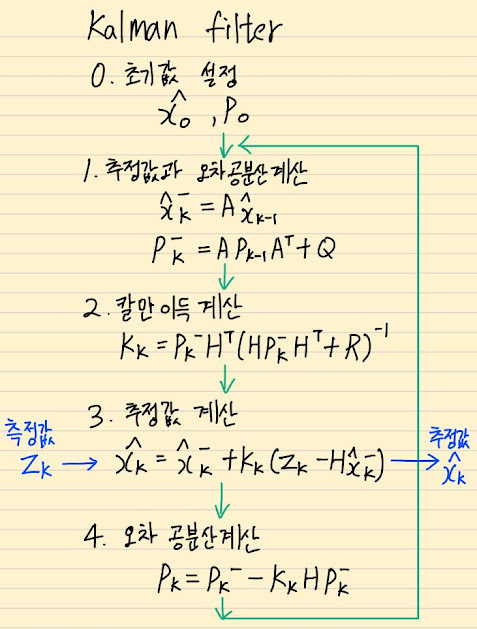 Kalman filter
0. 초기값 설정
x̂₀ , P₀
1. 추정값과 오차공분산계산
x̂ₖ⁻ = A x̂ₖ₋₁
Pₖ⁻ = A Pₖ₋₁ Aᵀ + Q
2. 칼만이득 계산
Kₖ = Pₖ⁻Hᵀ(HPₖ⁻Hᵀ + R)⁻¹
3. 추정값 계산
측정값
zₖ → x̂ₖ = x̂ₖ⁻ + Kₖ(zₖ - Hx̂ₖ⁻) → x̂ₖ
추정값
4. 오차 공분산계산
Pₖ = Pₖ⁻ - KₖHPₖ⁻